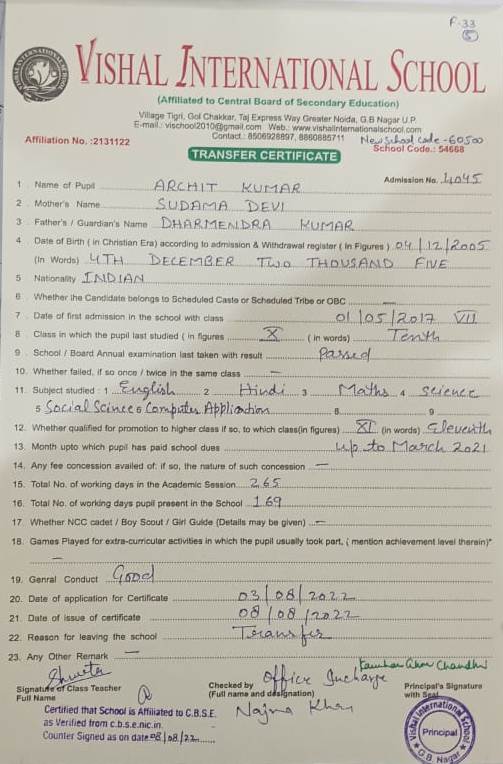 F-33
5
VISHAL INTERNATIONAL SCHOOL
(Affiliated to Central Board of Secondary Education)
Village Tigri, Gol Chakkar, Taj Express Way Greater Noida, G.B Nagar U.P.
E-mail.: vischool2010@gmail.com Web.: www.vishalinternationalschool.com
Contact.: 8506928897, 8860885711 New School Code -60500
Affiliation No. :2131122 School Code.: 54668
TRANSFER CERTIFICATE
Admission No. 4045
1 Name of Pupil ARCHIT KUMAR
2 Mother's Name SUDAMA DEVI
3 Father's / Guardian's Name DHARMENDRA KUMAR
4 Date of Birth ( in Christian Era) according to admission & Withdrawal register ( In Figures ) 04/12/2005
(In Words) 4TH DECEMBER TWO THOUSAND FIVE
5 Nationality INDIAN
6 Whether the Candidate belongs to Scheduled Caste or Scheduled Tribe or OBC —
7 Date of first admission in the school with class 01/05/2017 VII
8 Class in which the pupil last studied ( in figures X ( in words) Tenth
9 School / Board Annual examination last taken with result Passed
10. Whether failed, if so once / twice in the same class —
11. Subject studied : 1 English 2 Hindi 3 Maths 4 Science
5 Social Scince 6 Computer Appliction 8 9
12. Whether qualified for promotion to higher class if so, to which class(in figures) XI (in words) Eleventh
13. Month upto which pupil has paid school dues up to March 2021
14. Any fee concession availed of: if so, the nature of such concession —
15. Total No. of working days in the Academic Session 265
16. Total No. of working days pupil present in the School 169
17. Whether NCC cadet / Boy Scout / Girl Guide (Details may be given) —
18. Games Played for extra-curricular activities in which the pupil usually took part, ( mention achievement level therein)*
—
19. Genral Conduct Good
20. Date of application for Certificate 03/08/2022
21. Date of issue of certificate 08/08/2022
22. Reason for leaving the school Transfer
23. Any Other Remark —
Shweta
Signature of Class Teacher
Full Name
Checked by Office Incharge
(Full name and designation)
Najma Khan
Principal's Signature
with Seal
Certified that School is Affiliated to C.B.S.E.
as Verified from c.b.s.e.nic.in.
Counter Signed as on date 08/08/22
Vishal International School
Principal
G.B. Nagar